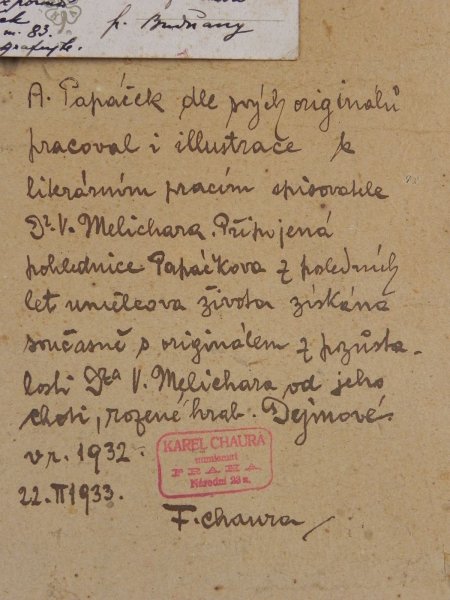 m. 83.
p. Budňany
A. Papáček dle svých originálů
pracoval i illustrace k
literárním pracím spisovatele
Dr. V. Melichara. Připojená
pohlednice Papáčkova z posledních
let umělcova života získána
současně s originálem z pozůsta-
losti Dra V. Melichara od jeho
choti, rozené hrab. Dejmové
v r. 1932.
KAREL CHAURA
numismat
PRAHA
Národní 23 n.
22. II 1933.
F. Chaura